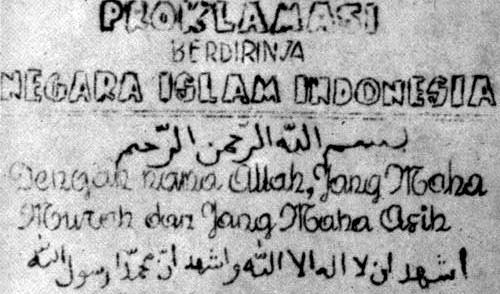 PROKLAMASI
BERDIRINJA
NEGARA ISLAM INDONESIA
بسم الله الرحمن الرحيم
Dengan nama Allah, Jang Maha
Murah dan Jang Maha Asih
اشهد ان لا اله الا الله واشهد ان محمدا رسول الله